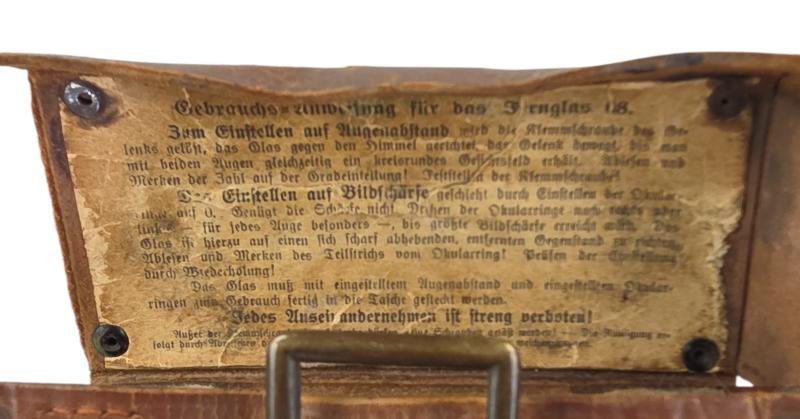 Gebrauchs=Anweisung für das Fernglas 08.
Zum Einstellen auf Augenabstand wird die Klemmschraube des Ge-
lenks gelöst, das Glas gegen den Himmel gerichtet, das Gelenk bewegt, bis man
mit beiden Augen gleichzeitig ein kreisrundes Gesichtsfeld erhält. Ablesen und
Merken der Zahl auf der Gradeinteilung! Feststellen der Klemmschraube!
Das Einstellen auf Bildschärfe geschieht durch Einstellen der Okular-
ringe auf 0. Genügt die Schärfe nicht, Drehen der Okularringe nach rechts oder
links — für jedes Auge besonders —, bis größte Bildschärfe erreicht wird. Das
Glas ist hierzu auf einen sich scharf abhebenden, entfernten Gegenstand zu richten.
Ablesen und Merken des Teilstrichs vom Okularring! Prüfen der Einstellung
durch Wiederholung!
Das Glas muß mit eingestelltem Augenabstand und eingestellten Okular-
ringen zum Gebrauch fertig in die Tasche gesteckt werden.
Jedes Auseinandernehmen ist streng verboten!
Außer der Klemmschraube dürfen keine Schrauben gelöst werden! — Die Reinigung er-
folgt durch Abwischen der